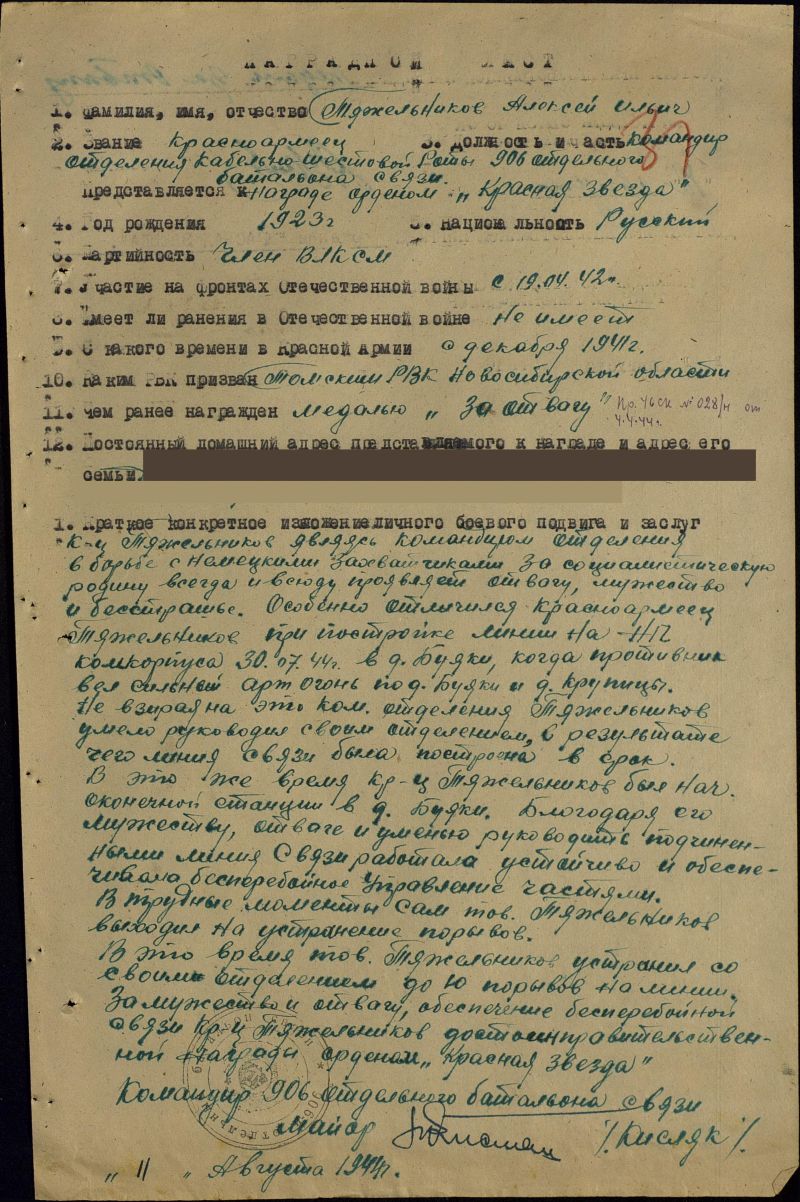 НАГРАДНОЙ ЛИСТ
1. Фамилия, имя, отчество Тяжельников Алексей Ильич
2. Звание Красноармеец 3. Должность и часть Командир
отделения Кабельно-шестовой Роты 906 отдельного
батальона связи.
Представляется к Награде орденом „Красная Звезда"
4. Год рождения 1923 г 5. Национальность Русский
6. Партийность Член ВЛКСМ
7. Участие на фронтах Отечественной войны с 19.04.42 г.
8. Имеет ли ранения в Отечественной войне Не имеет
9. С какого времени в Красной Армии с декабря 1941 г.
10. Каким РВК призван Томским РВК Новосибирской области
11. Чем ранее награжден медалью „За отвагу" Пр. 46 СК № 028/н от
4.4.44 г.
12. Постоянный домашний адрес представляемого к награде и адрес его
семьи
1. Краткое конкретное изложение личного боевого подвига и заслуг
К-ц Тяжельников являясь командиром отделения
в борьбе с Немецкими Захватчиками За социалистическую
родину всегда и всюду проявляет отвагу, мужество
и бесстрашье. Особенно отличился Красноармеец
Тяжельников при постройке линии На НП
комкорпуса 30.07.44 г. в д. Буяки, когда противник
вел сильный арт огонь по д. Буяки и д. Крупицы.
Не взирая на это ком. отделения Тяжельников
умело руководил своим отделением, в результате
чего линия связи была построена в срок.
В это же время Кр-ц Тяжельников был Нач.
оконечной станции в д. Буяки. Благодаря его
мужеству, отваге и уменью руководить подчинен-
ными линия Связи работала устойчиво и обеспе-
чивала бесперебойное Управление частями.
В трудные моменты Сам тов. Тяжельников
выходил На устранение порывов.
В это время тов. Тяжельников устранил со
своим отделением до 10 порывов На линии.
За мужество и отвагу, обеспечение бесперебойной
связи Кр-ц Тяжельников достоин правительствен-
ной Награды орденом „Красная Звезда"
Командир 906 отдельного батальона связи
Майор /Кисляк/.
„11" Августа 1944 г.